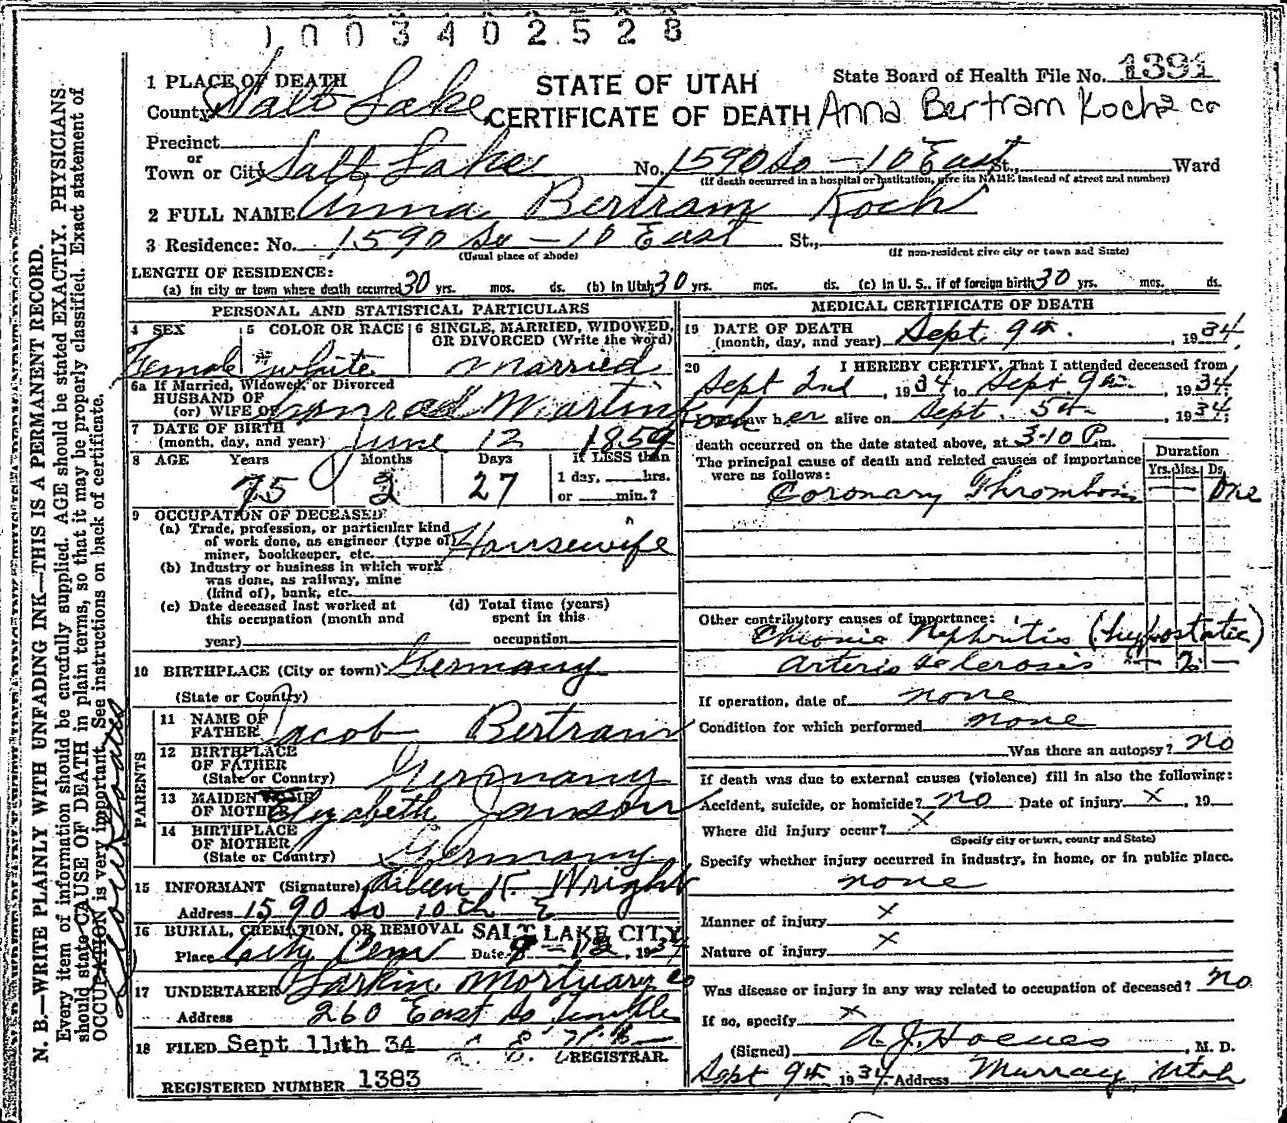 1003402528
1 PLACE OF DEATH
STATE OF UTAH
State Board of Health File No. 1391
County Salt Lake
CERTIFICATE OF DEATH
Anna Bertram Koch 2 co
Precinct
or
Town or City Salt Lake No. 1590 So - 10 East St., Ward
(If death occurred in a hospital or institution, give its NAME instead of street and number)
2 FULL NAME Anna Bertram Koch
3 Residence: No. 1590 So - 10 East St.,
(Usual place of abode) (If non-resident give city or town and State)
LENGTH OF RESIDENCE:
(a) In city or town where death occurred 30 yrs. mos. ds. (b) In Utah 30 yrs. mos. ds. (c) In U. S., if of foreign birth 30 yrs. mos. ds.
PERSONAL AND STATISTICAL PARTICULARS
4 SEX Female
5 COLOR OR RACE white
6 SINGLE, MARRIED, WIDOWED, OR DIVORCED (Write the word) Married
6a If Married, Widowed, or Divorced
HUSBAND OF
(or) WIFE OF Conrad Martin Koch
7 DATE OF BIRTH
(month, day, and year) June 12 1859
8 AGE Years Months Days If LESS than
75 2 27 1 day, hrs.
or min.?
9 OCCUPATION OF DECEASED
(a) Trade, profession, or particular kind
of work done, as engineer (type of
miner, bookkeeper, etc. Housewife
(b) Industry or business in which work
was done, as railway, mine
(kind of), bank, etc.
(c) Date deceased last worked at
this occupation (month and
year)
(d) Total time (years)
spent in this
occupation
10 BIRTHPLACE (City or town) Germany
(State or Country)
PARENTS
11 NAME OF
FATHER Jacob Bertram
12 BIRTHPLACE
OF FATHER
(State or Country) Germany
13 MAIDEN NAME
OF MOTHER Elizabeth Janson
14 BIRTHPLACE
OF MOTHER
(State or Country) Germany
15 INFORMANT (Signature) Eileen K. Wright
Address 1590 So 10th E
16 BURIAL, CREMATION, OR REMOVAL SALT LAKE CITY
Place City Cem Date 9-12, 1934
17 UNDERTAKER Larkin Mortuary Co
Address 260 East So Temple
18 FILED Sept 11th 34
REGISTRAR.
REGISTERED NUMBER 1383
MEDICAL CERTIFICATE OF DEATH
19 DATE OF DEATH
(month, day, and year) Sept. 9th. , 1934
20 I HEREBY CERTIFY, That I attended deceased from
Sept 2nd, 1934 to Sept 9th, 1934
saw her alive on Sept. 5th, 1934
death occurred on the date stated above, at 3-10 P.m.
The principal cause of death and related causes of importance
were as follows:
Duration
Yrs. Mos. Ds.
Coronary Thrombosis One
Other contributory causes of importance:
Chronic Nephritis (hypostatic)
Arterio sclerosis
If operation, date of none
Condition for which performed none
Was there an autopsy? No
If death was due to external causes (violence) fill in also the following:
Accident, suicide, or homicide? no Date of injury x, 19
Where did injury occur? x
(Specify city or town, county and State)
Specify whether injury occurred in industry, in home, or in public place.
none
Manner of injury x
Nature of injury x
Was disease or injury in any way related to occupation of deceased? No
If so, specify x
(Signed) , M. D.
Sept 9th 1934 Address Murray Utah
N. B.—WRITE PLAINLY WITH UNFADING INK—THIS IS A PERMANENT RECORD.
Every item of information should be carefully supplied. AGE should be stated EXACTLY. PHYSICIANS
should state CAUSE OF DEATH in plain terms, so that it may be properly classified. Exact statement of
OCCUPATION is very important. See instructions on back of certificate.